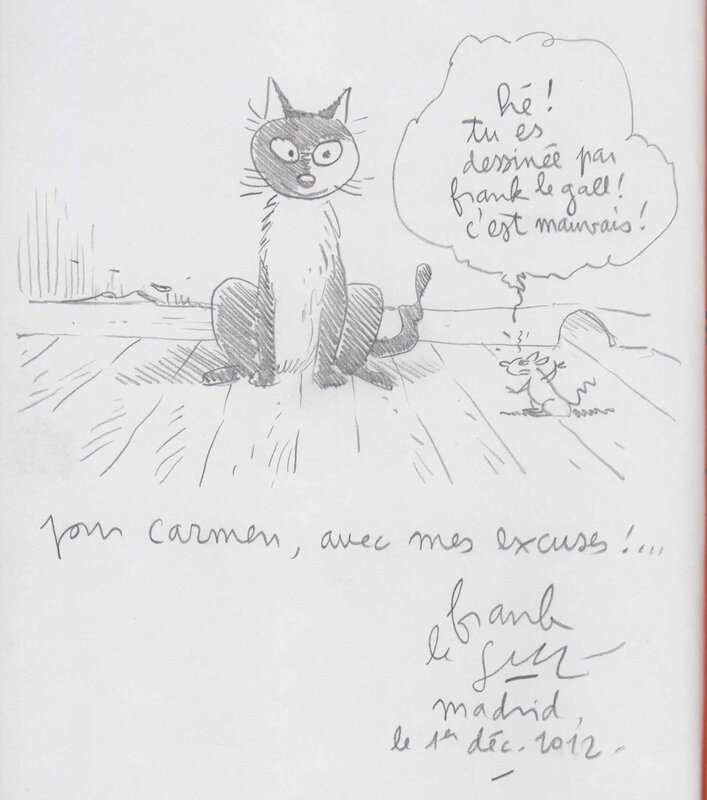 hé !
tu es
dessinée par
frank le gall !
c'est mauvais !
pour carmen, avec mes excuses !...
frank
le gall
madrid,
le 1er déc. 2012.